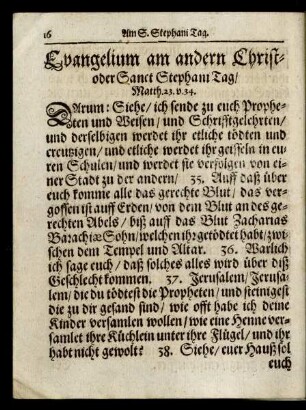 16 Am S. Stephani Tag.
Evangelium am andern Christ-
oder Sanct Stephani Tag/
Matth. 23. v. 34.
Darum: Siehe/ ich sende zu euch Prophe-
ten und Weisen/ und Schrifftgelehrten/
und derselbigen werdet ihr etliche tödten und
creutzigen/ und etliche werdet ihr geisseln in eu-
ren Schulen/ und werdet sie verfolgen von ei-
ner Stadt zu der andern/ 35. Auff daß über
euch komme alle das gerechte Blut/ das ver-
gossen ist auff Erden/ von dem Blut an des ge-
rechten Abels/ biß auff das Blut Zacharias
Barachiæ Sohn/ welchen ihr getödtet habt/ zwi-
schen dem Tempel und Altar. 36. Warlich
ich sage euch/ daß solches alles wird über diß
Geschlecht kommen. 37. Jerusalem/ Jerusa-
lem/ die du tödtest die Propheten/ und steinigest
die zu dir gesand sind/ wie offt habe ich deine
Kinder versamlen wollen/ wie eine Henne ver-
samlet ihre Küchlein unter ihre Flügel/ und ihr
habt nicht gewolt? 38. Siehe/ euer Hauß sol
euch